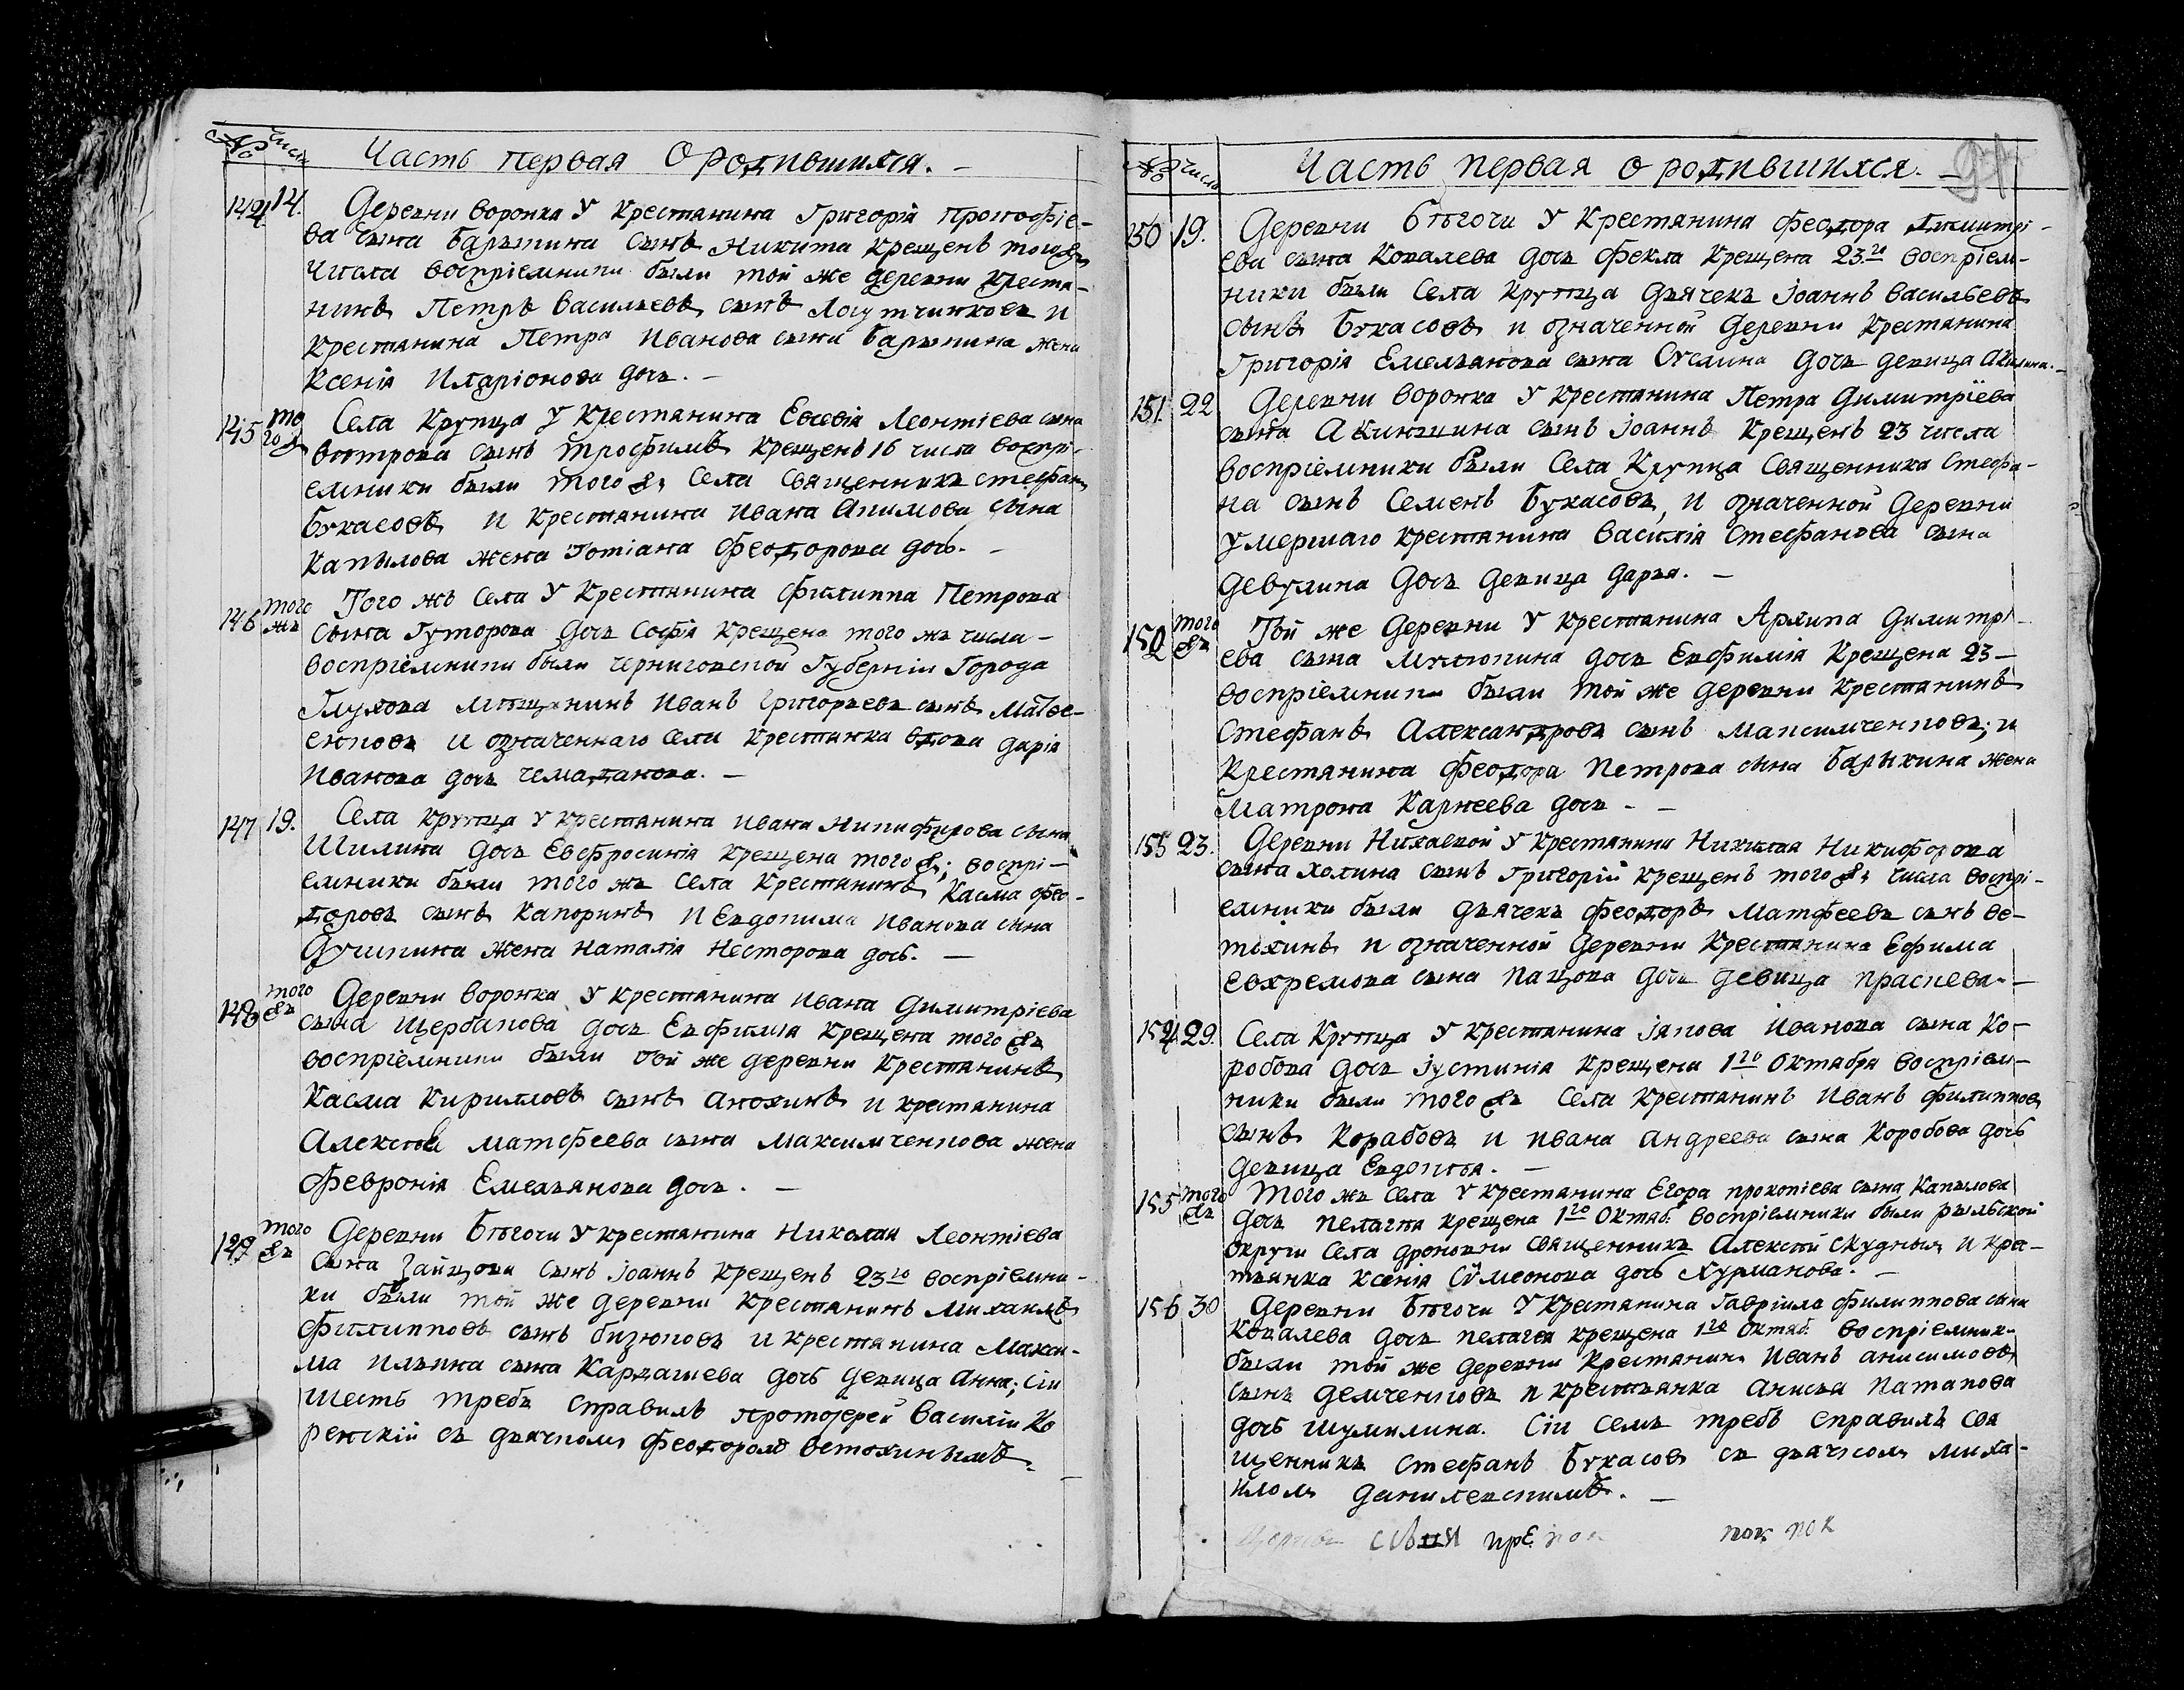 № Число Часть первая о родившихся. –
144 14. Деревни Воронка у крестянина Григорія Прокофіе-
ва сына Барыкина сынъ Никита крещенъ тогожъ
числа воспріемники были той же деревни крестя-
нинъ Петръ Васильевъ сынъ Логутчинковъ и
крестянина Петра Иванова сына Барыкина жена
Ксенія Иларіонова дочь. –
145 того ж Села Крупца у крестянина Евсевія Леонтіева сына
Вострова сынъ Трофимъ крещенъ 16 числа воспрі-
емники были того жъ села священникъ Стефанъ
Букасовъ и крестянина Ивана Акимова сына
Капылова жена Татіана Феодорова дочь. –
146 того жъ Того жъ села у крестянина Филиппа Петрова
сына Гуторова дочь Софія крещена того жъ числа –
воспріемники были Черниговской губерніи города
Глухова мѣщанинъ Иванъ Григорьевъ сынъ Матве-
енковъ и означеннаго села крестянка вдова Дарія
Иванова дочь Чемоданова. –
147 19. Села Крупца у крестянина Ивана Никифорова сына
Шилина дочь Евфросинія крещена того ж; воспрі-
емники были того жъ села крестянинъ Касма Фео-
доровъ сынъ Капоринъ и Евдокима Иванова сына
жена Наталія Несторова дочь. –
148 того жъ Деревни Воронка у крестянина Ивана Димитріева
сына Щербакова дочь Евфимія крещена того жъ
воспріемники были той же деревни крестянинъ
Касма Кирилловъ сынъ Анохинъ и крестянина
Алексѣя Матфеева сына Максимченкова жена
Февронія Емельянова дочь. –
149 того жъ Деревни Бѣгочи у крестянина Николая Леонтіева
сына Зайцова сынъ Іоаннъ крещенъ 23го воспріемни-
ки были той же деревни крестянинъ Михаилъ
Филипповъ сынъ Бизюковъ и крестянина Макси-
ма Ильина сына Кардашева дочь девица Анна; сіи
шесть требъ справилъ протоіерей Василій Ко
ренскій съ дьячкомъ Феодоромъ Ветохинымъ. –
№ Число Часть первая о родившихся. –
150 19. Деревни Бѣгочи у крестянина Феодора Димитрі-
ева сына Ковалева дочь Фекла крещена 23го воспріем-
ники были села Крупца дьячекъ Іоаннъ Васильевъ
сынъ Букасовъ и означенной деревни крестянина
Григорія Емельянова сына Суслина дочь девица Акилина. –
151. 22 Деревни Воронка у крестянина Петра Димитріева
сына Акиншина сынъ Іоаннъ крещенъ 23 числа
воспріемники были села Крупца священника Стефа-
на сынъ Семенъ Букасовъ, и означенной деревни
умершаго крестянина Василія Стефанова сына
Девулина дочь девица Дарья. –
152 того жъ Той же деревни у крестянина Архипа Димитрі-
ева сына дочь Евфимія крещена 23 –
воспріемники были той же деревни крестянинъ
Стефанъ Александровъ сынъ Максимченковъ; и
крестянина Феодора Петрова сына Барыкина жена
Матрона Карнеева дочь – –
153 23. Деревни у крестянина Николая Никифорова
сына Холина сынъ Григорій крещенъ того жъ числа воспрі-
емники были дьячекъ Феодоръ Матфеевъ сынъ Ве-
тохинъ и означенной деревни крестянина Ефима
Евхремова сына Пацова дочь девица Праскева. –
154 29. Села Крупца у крестянина Іакова Иванова сына Ко-
робова дочь Іустинія крещена 1го октября воспріем-
ники были того жъ села крестянинъ Иванъ Филипповъ
сынъ Корабовъ и Ивана Андреева сына Коробова дочь
девица Евдокія. –
155 того жъ Того жъ села у крестянина Егора Прокопіева сына Капылова
дочь Пелагія крещена 1го октяб. воспріемники были Рыльской
округи села Дроновки священникъ Алексій Скудный и крес-
тьянка Ксенія Сѵмеонова дочь Хурманова. –
156 30 Деревни Бѣгочи у крестянина Гавріила Филиппова сына
Ковалева дочь Пелагія крещена 1го октяб. воспріемник-
были той же деревни крестянинъ Иванъ Анисимовъ
сынъ Демченковъ и крестьянка Анисья Патапова
дочь Шумилина. Сіи семь требъ справилъ свя
щенникъ Стефанъ Букасовъ съ дьячкомъ Миха-
иломъ Данилевскимъ. –
пок пок